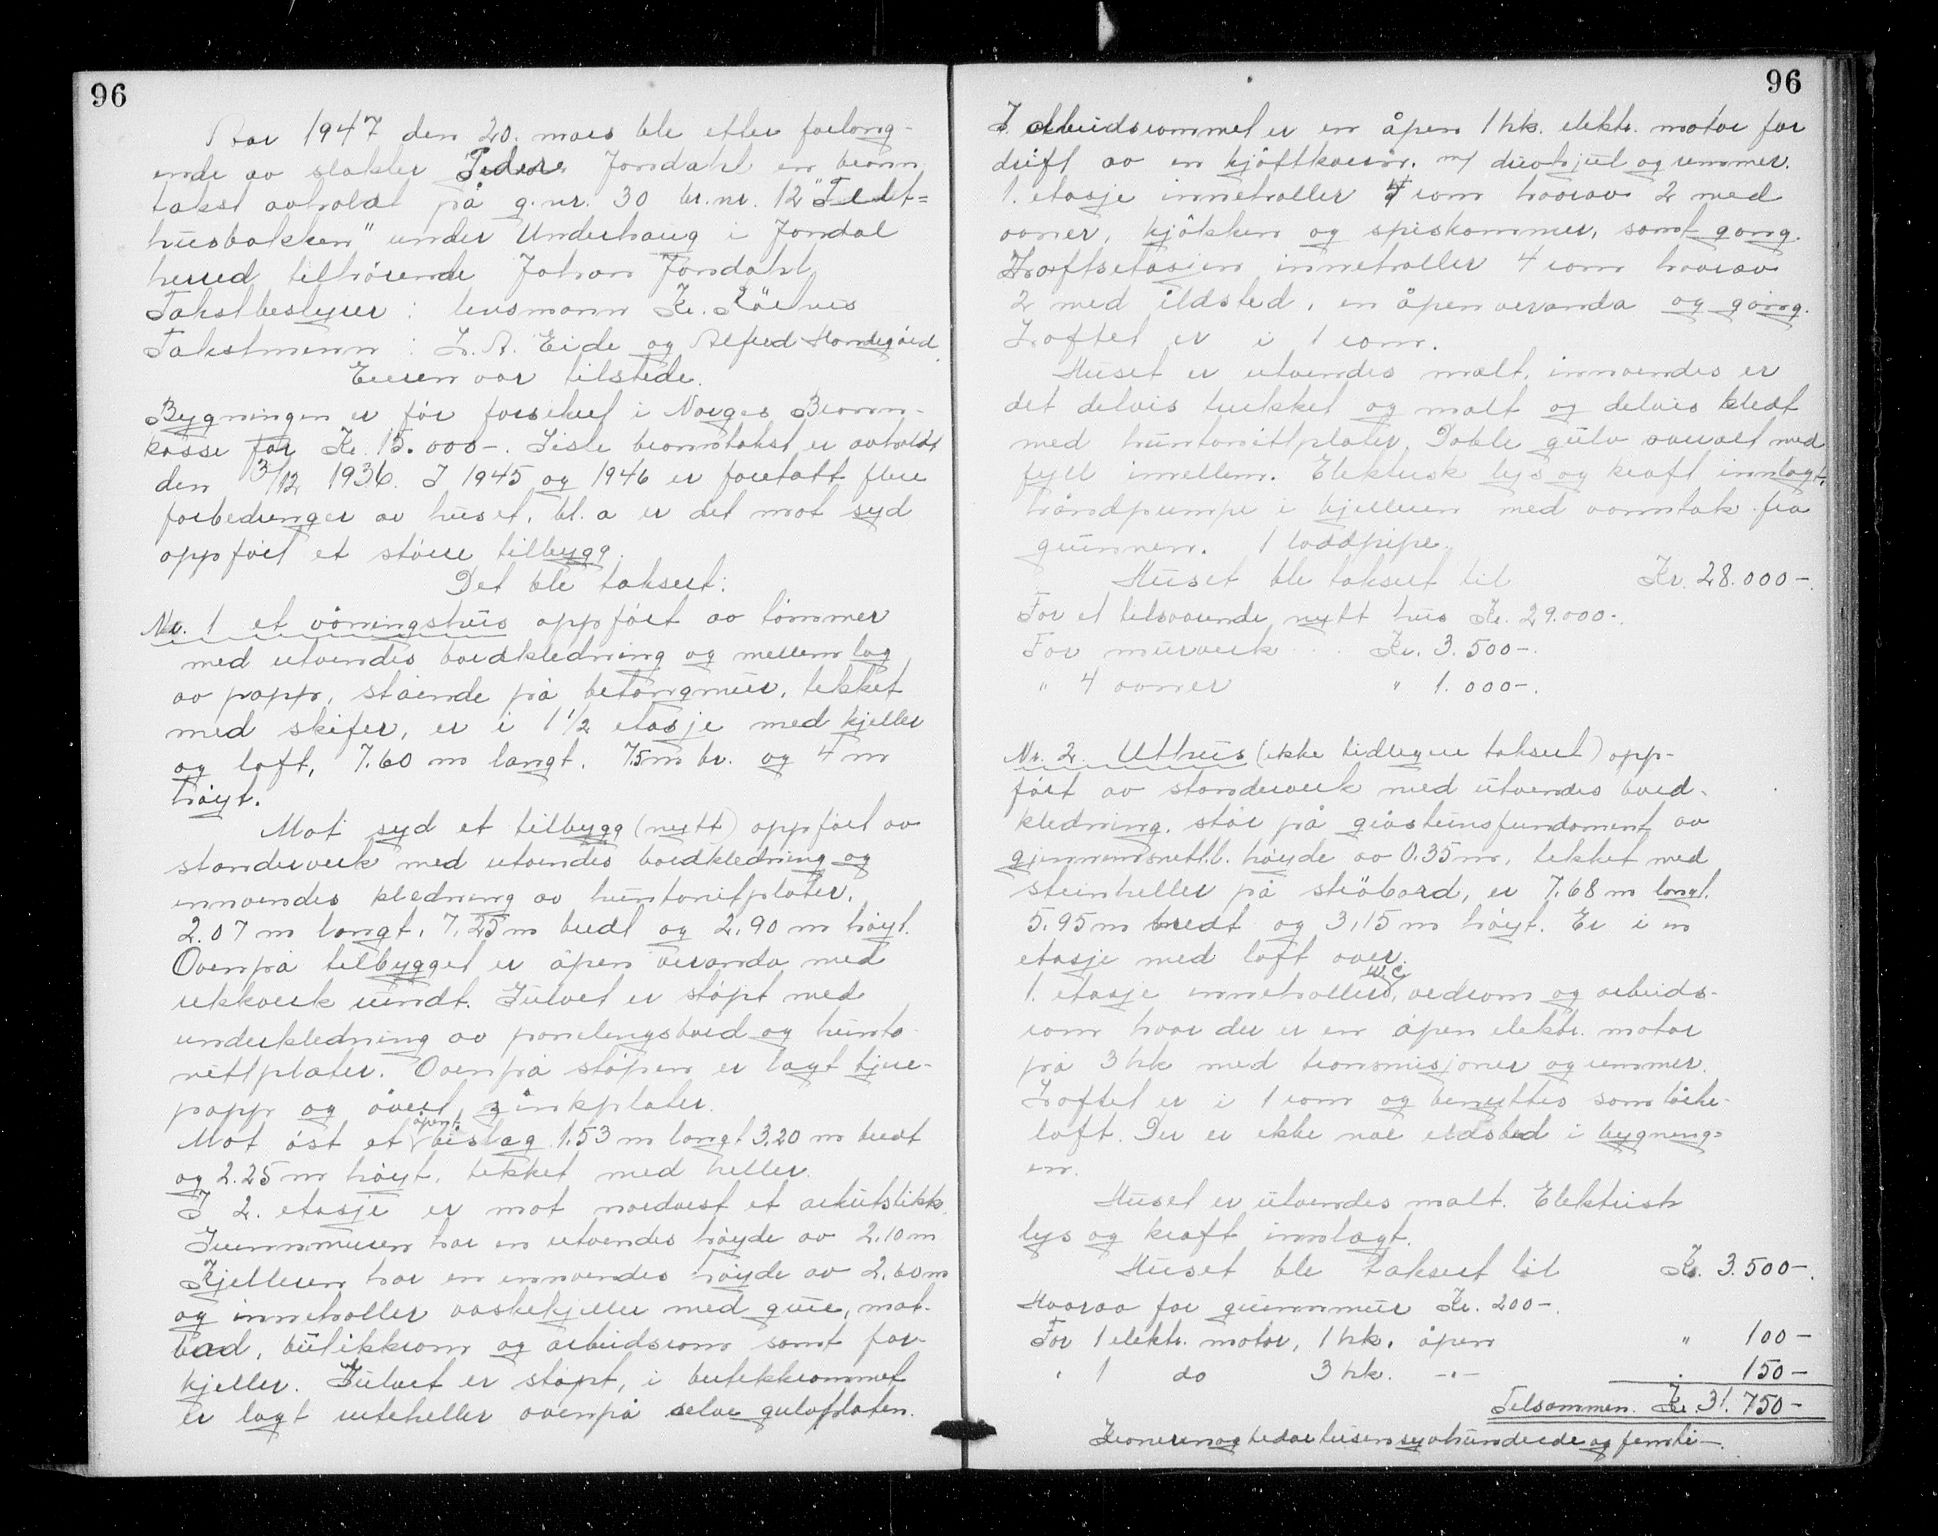 96
Aar 1947 den 20. mars ble etter forlang-
ende av slakter Peder Jondahl en brann
takst avholdt på g.nr. 30 br.nr. 12 "Tedt=
husbakken" under Underhaug i Jondal
herred tilhørende Johan Jondahl
Takstbestyrer: lensmann Kr.
Takstmenn: L. A. Eide og Alfred Handegård.
Eieren var tilstede.
Bygningen er før forsikret i Norges Brann-
kasse for Kr. 15.000-. Siste branntakst er avholdt
den 3/12 1936. I 1945 og 1946 er foretatt flere
forbedringer av huset, bl.a er det mot syd
oppført et større tilbygg.
Det ble taksert:
Nr. 1 et våningshus oppført av tømmer
med utvendes bordkledning og mellemlag
av papp, stående på betongmur, tekket
med skifer, er i 1 1/2 etasje med kjeller
og loft, 7.60 m langt. 7.5 m br. og 4 m
høyt.
Mot syd et tilbygg (nytt) oppført av
standerverk med utvendes bordkledning og
innvendes kledning av huntonitplater.
2.07 m langt, 7,25 m bredt og 2.90 m høyt.
Ovenpå tilbygget er åpen veranda med
rekkverk rundt. Gulvet er støpt med
underkledning av panelingsbord og hunto-
nittplater. Ovenpå støpen er lagt tjære-
papp og øverst zinkplater.
Mot øst et åpent bislag 1.53 m langt 3.20 m bredt
og 2.25 m høyt, tekket med heller.
I 2. etasje er mot nordvest et arkutstikk.
Grunnmuren har en utvendes høyde av 2.10 m
Kjelleren har en innvendes høyde av 2.60 m
og inneholler vaskekjeller med grue, mat-
bod, butikkrom og arbeidsrom samt for-
kjeller. Gulvet er støpt, i butikkrommet
er lagt ruteheller ovenpå selve gulvplaten.
96
I arbeidsrommet er en åpen 1 hk. elektr. motor for
drift av en kjøttkvern. m/ drivhjul og remmer.
1. etasje inneholler 4 rom hvorav 2 med
ovner, kjøkken og spiskammer, samt gang.
Loftsetasjen inneholler 4 rom hvorav
2 med ildsted, en åpen veranda og gang.
Loftet er i 1 rom.
Huset er utvendes malt, innvendes er
det delvis trekket og malt og delvis kledt
med huntonittplater. Doble gulv overalt med
fyll imellem. Elektrisk lys og kraft innlagt,
håndpumpe i kjelleren med vanntak fra
grunnen. 1 loddpipe.
Huset ble taksert til Kr. 28.000-.
For et tilsvarende nytt hus Kr. 29.000-.
For murverk . . Kr. 3.500-.
" 4 ovner " 1.000-.
Nr. 2. Uthus (ikke tidligere taksert) opp-
ført av standerverk med utvendes bord-
kledning, står på gråsteinsfundament av
gjennemsnittl. høyde av 0.35 m, tekket med
steinheller på strøbord, er 7.68 m langt.
5.95 m bredt og 3,15 m høyt. Er i en
etasje med loft over.
1. etasje inneholler W.C, vedrom og arbeids-
rom hvor der er en åpen elektr. motor
på 3 hk med transmisjoner og remmer.
Loftet er i 1 rom og benyttes som tørke-
loft. Der er ikke noe eldsted i bygning=
en.
Huset er utvendes malt. Elektrisk
lys og kraft innlagt.
Huset ble taksert til Kr. 3.500-.
Hvorav for grunnmur Kr. 200-.
For 1 elektr. motor, 1 hk. åpen " 100-
" 1 do 3 hk. -"- . 150-
Tilsammen. Kr. 31.750-
Kronerenogtredvetusensyvhundrede og femti-.